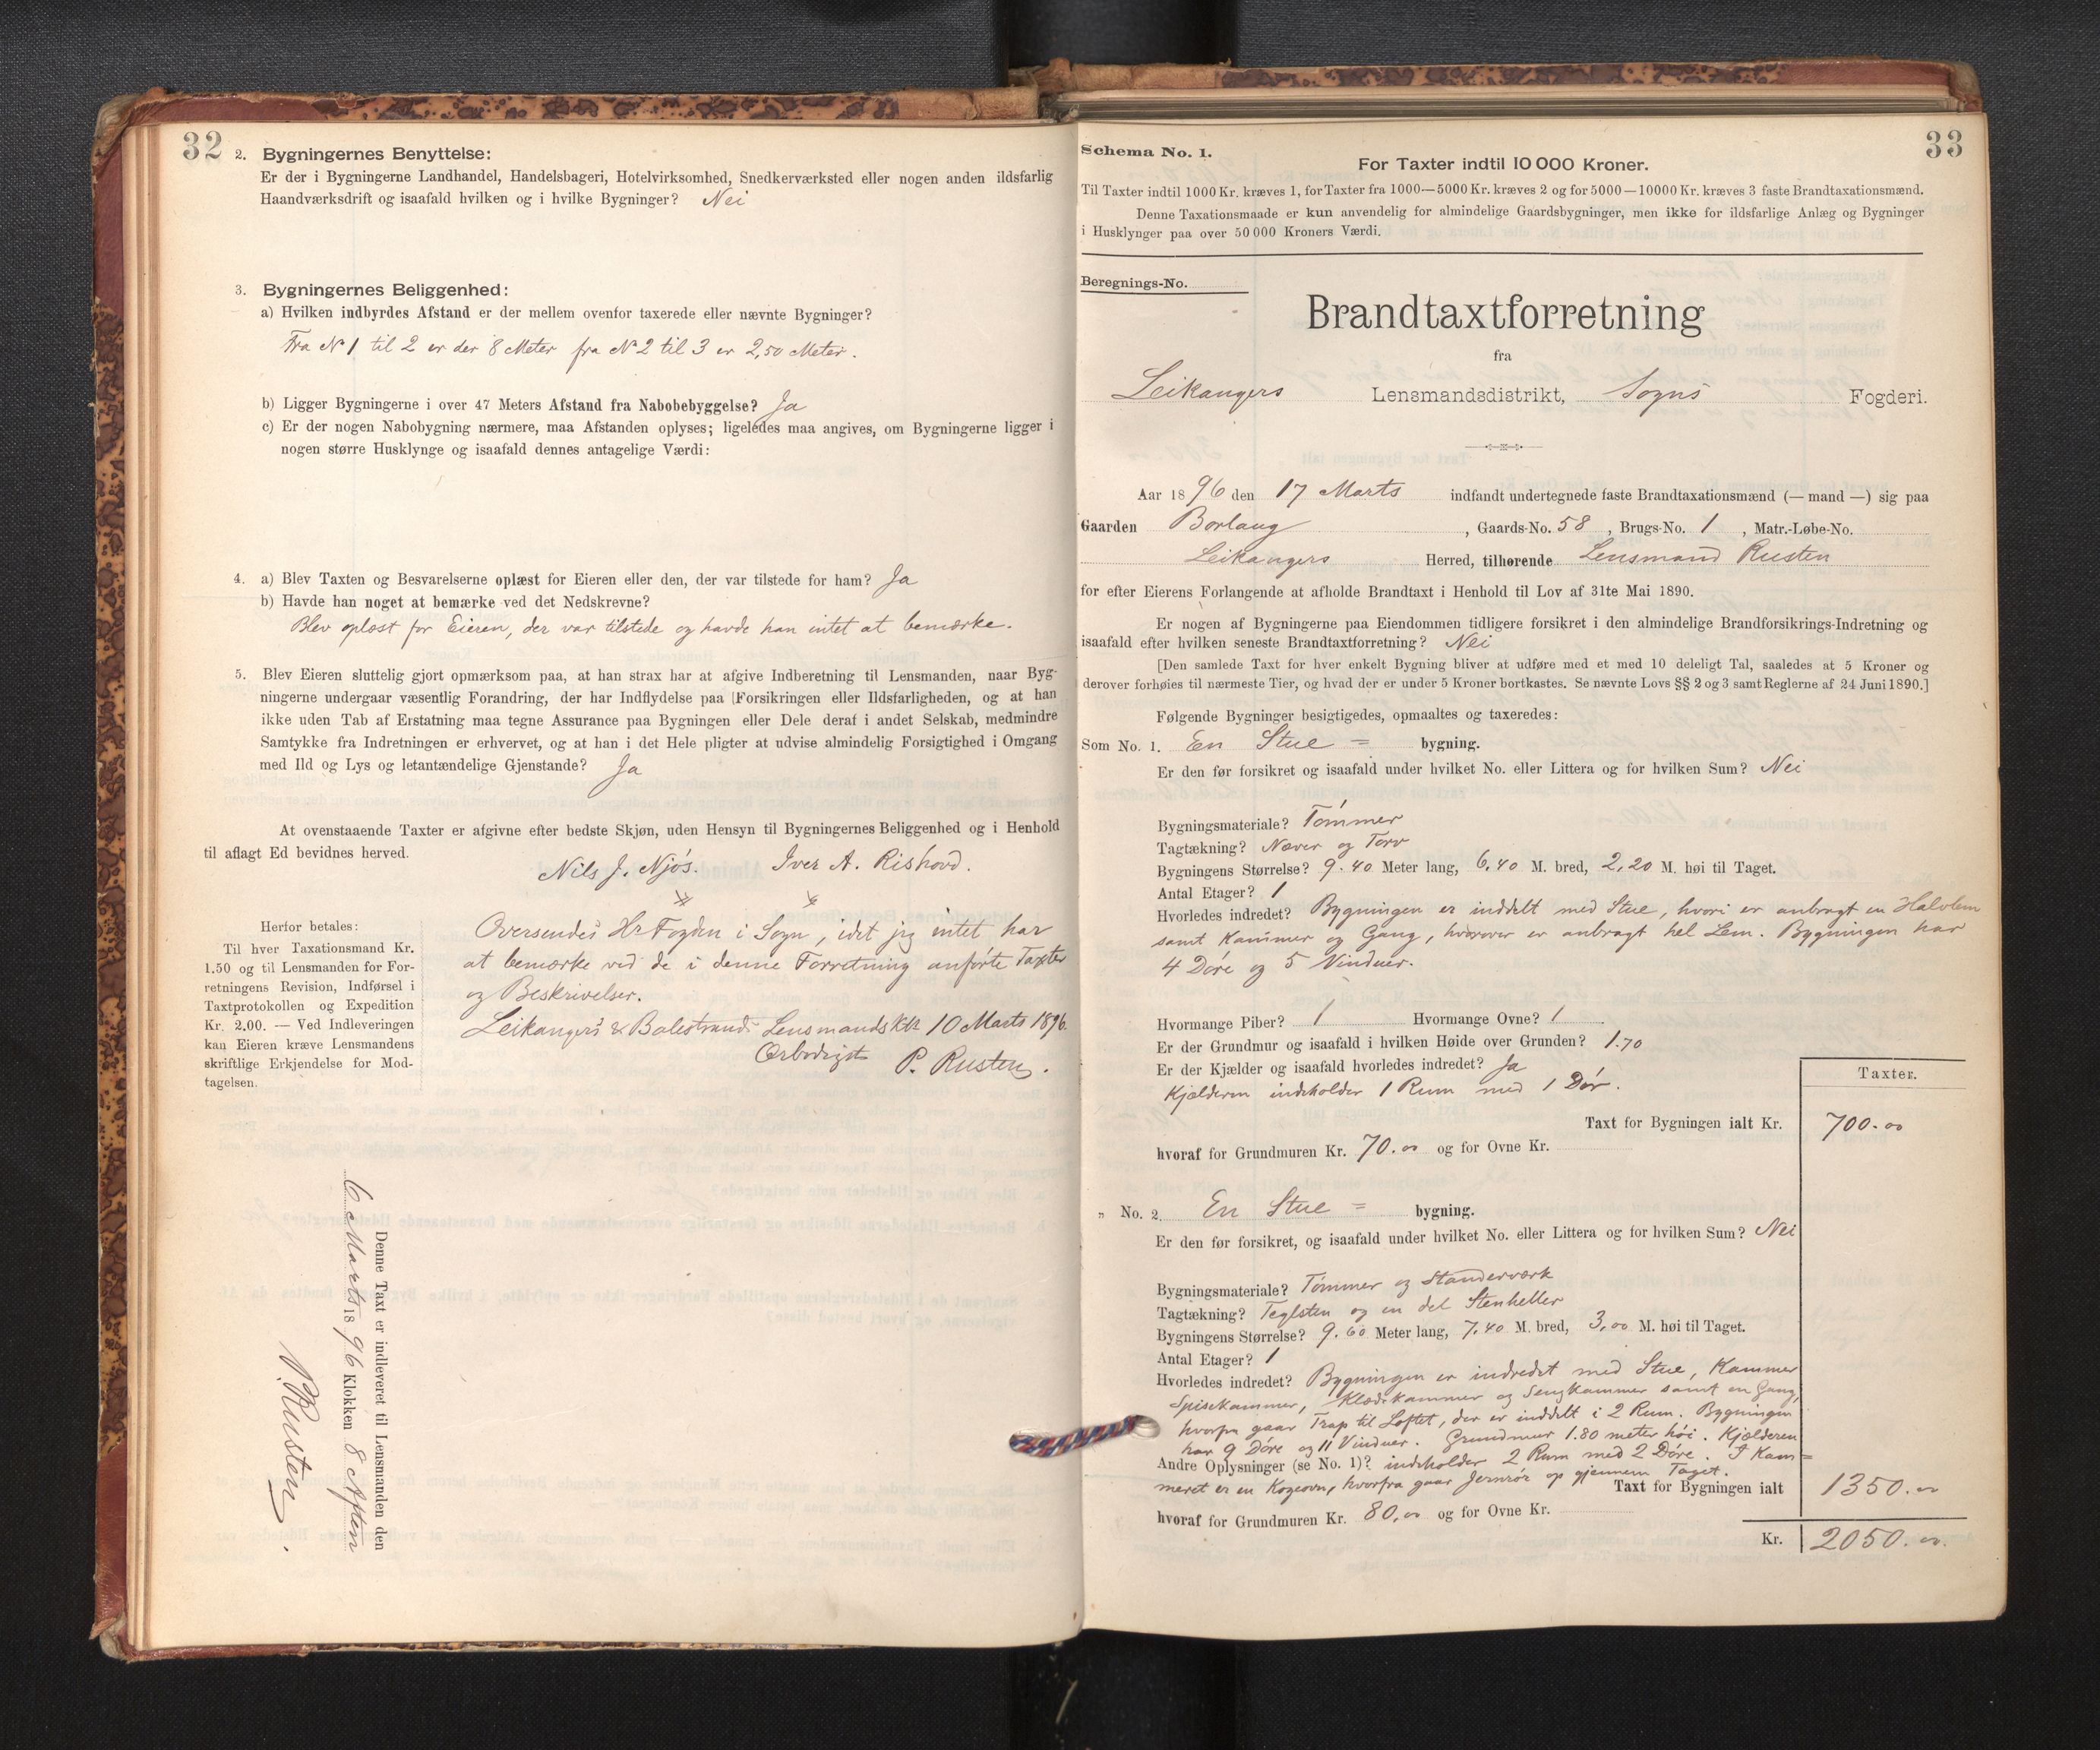 32
2. Bygningernes Benyttelse:
Er der i Bygningerne Landhandel, Handelsbageri, Hotelvirksomhed, Snedkerværksted eller nogen anden ildsfarlig
Haandværksdrift og isaafald hvilken og i hvilke Bygninger? Nei
3. Bygningernes Beliggenhed:
a) Hvilken indbyrdes Afstand er der mellem ovenfor taxerede eller nævnte Bygninger?
Fra N 1 til 2 er der 8 Meter fra N 2 til 3 er 2,50 Meter.
b) Ligger Bygningerne i over 47 Meters Afstand fra Nabobebyggelse? Ja
c) Er der nogen Nabobygning nærmere, maa Afstanden oplyses; ligeledes maa angives, om Bygningerne ligger i
nogen større Husklynge og isaafald dennes antagelige Værdi:
4. a) Blev Taxten og Besvarelserne oplæst for Eieren eller den, der var tilstede for ham? Ja
b) Havde han noget at bemærke ved det Nedskrevne?
Blev oplæst for Eieren, der var tilstede og havde han intet at bemærke.
5. Blev Eieren sluttelig gjort opmærksom paa, at han strax har at afgive Indberetning til Lensmanden, naar Byg-
ningerne undergaar væsentlig Forandring, der har Indflydelse paa Forsikringen eller Ildsfarligheden, og at han
ikke uden Tab af Erstatning maa tegne Assurance paa Bygningen eller Dele deraf i andet Selskab, medmindre
Samtykke fra Indretningen er erhvervet, og at han i det Hele pligter at udvise almindelig Forsigtighed i Omgang
med Ild og Lys og letantændelige Gjenstande? Ja
At ovenstaaende Taxter er afgivne efter bedste Skjøn, uden Hensyn til Bygningernes Beliggenhed og i Henhold
til aflagt Ed bevidnes herved.
Nils J. Njøs. Iver A. Rishovd.
Herfor betales:
Til hver Taxationsmand Kr.
1.50 og til Lensmanden for For-
retningens Revision, Indførsel i
Taxtprotokollen og Expedition
Kr. 2.00. — Ved Indleveringen
kan Eieren kræve Lensmandens
skriftlige Erkjendelse for Mod-
tagelsen.
Oversendes Hr Fogden i Sogn, idet jeg intet har
at bemærke ved de i denne Forretning anførte Taxter
og Beskrivelser.
Leikangers & Balestrands Lensmandsktr 10 Marts 1896.
Ærbødigst P. Rusten.
Denne Taxt er indleveret til Lensmanden den
6 Marts 1896 Klokken 8 Aften
P. Rusten.
33
Schema No. 1.
For Taxter indtil 10 000 Kroner.
Til Taxter indtil 1000 Kr. kræves 1, for Taxter fra 1000—5000 Kr. kræves 2 og for 5000—10000 Kr. kræves 3 faste Brandtaxationsmænd.
Denne Taxationsmaade er kun anvendelig for almindelige Gaardsbygninger, men ikke for ildsfarlige Anlæg og Bygninger
i Husklynger paa over 50 000 Kroners Værdi.
Beregnings-No.
Brandtaxtforretning
fra
Leikangers Lensmandsdistrikt, Sogns Fogderi.
Aar 1896 den 17 Marts indfandt undertegnede faste Brandtaxationsmænd (— mand —) sig paa
Gaarden Borlaug, Gaards-No. 58, Brugs-No. 1, Matr.-Løbe-No.
Leikangers Herred, tilhørende Lensmand Rusten
for efter Eierens Forlangende at afholde Brandtaxt i Henhold til Lov af 31te Mai 1890.
Er nogen af Bygningerne paa Eiendommen tidligere forsikret i den almindelige Brandforsikrings-Indretning og
isaafald efter hvilken seneste Brandtaxtforretning? Nei
[Den samlede Taxt for hver enkelt Bygning bliver at udføre med et med 10 deleligt Tal, saaledes at 5 Kroner og
derover forhøies til nærmeste Tier, og hvad der er under 5 Kroner bortkastes. Se nævnte Lovs §§ 2 og 3 samt Reglerne af 24 Juni 1890.]
Følgende Bygninger besigtigedes, opmaaltes og taxeredes:
Som No. 1. En Stue = bygning.
Er den før forsikret og isaafald under hvilket No. eller Littera og for hvilken Sum? Nei
Bygningsmateriale? Tømmer
Tagtækning? Næver og Torv
Bygningens Størrelse? 9.40 Meter lang, 6.40 M. bred, 2,20 M. høi til Taget.
Antal Etager? 1
Hvorledes indredet? Bygningen er inddelt med Stue, hvori er anbragt en Halvlem
samt Kammer og Gang, hvorover er anbragt hel Lem. Bygningen har
4 Døre og 5 Vinduer.
Hvormange Piber? 1 Hvormange Ovne? 1
Er der Grundmur og isaafald i hvilken Høide over Grunden? 1.70
Er der Kjælder og isaafald hvorledes indredet? Ja
Kjælderen indeholder 1 Rum med 1 Dør.
Taxter.
Taxt for Bygningen ialt Kr. 700.00
hvoraf for Grundmuren Kr. 70.00 og for Ovne Kr.
„ No. 2. En Stue = bygning.
Er den før forsikret, og isaafald under hvilket No. eller Littera og for hvilken Sum? Nei
Bygningsmateriale? Tømmer og Standerværk
Tagtækning? Teglsten og en del Stenheller
Bygningens Størrelse? 9.60 Meter lang, 7.40 M. bred, 3,00 M. høi til Taget.
Antal Etager? 1
Hvorledes indredet? Bygningen er indredet med Stue, Kammer
Spisekammer, Klædekammer og Sengkammer samt en Gang,
hvorfra gaar Trap til Loftet, der er inddelt i 2 Rum. Bygningen
har 9 Døre og 11 Vinduer. Grundmur 1.80 meter høi. Kjælderen
Andre Oplysninger (se No. 1)? indeholder 2 Rum med 2 Døre. I Kam=
meret er en Kogeovn, hvorfra gaar Jernrør op gjennem Taget.
Taxt for Bygningen ialt 1350.00
hvoraf for Grundmuren Kr. 80,00 og for Ovne Kr.
Kr. 2050.00